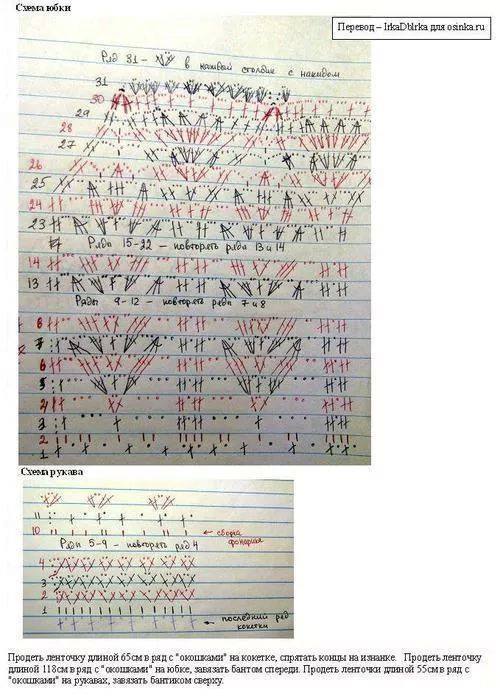 Схема юбки
Перевод – IrkaDblrka для osinka.ru
Ряд 31 - в каждый столбик с накидом
31
30
29
28
27
26
25
24
23
Ряды 15-22 – повторять ряда 13 и 14
14
13
Ряды 9-12 – повторять ряда 7 и 8
8
7
6
5
4
3
2
1
Схема рукава
11
10 сборка фонарика
Ряды 5-9 – повторять ряд 4
4
3
2
1
последний ряд кокетки
Продеть ленточку длиной 65см в ряд с "окошками" на кокетке, спрятать концы на изнанке. Продеть ленточку
длиной 118см в ряд с "окошками" на юбке, завязать бантом спереди. Продеть ленточки длиной 55см в ряд с
"окошками" на рукавах, завязать бантиком сверху.